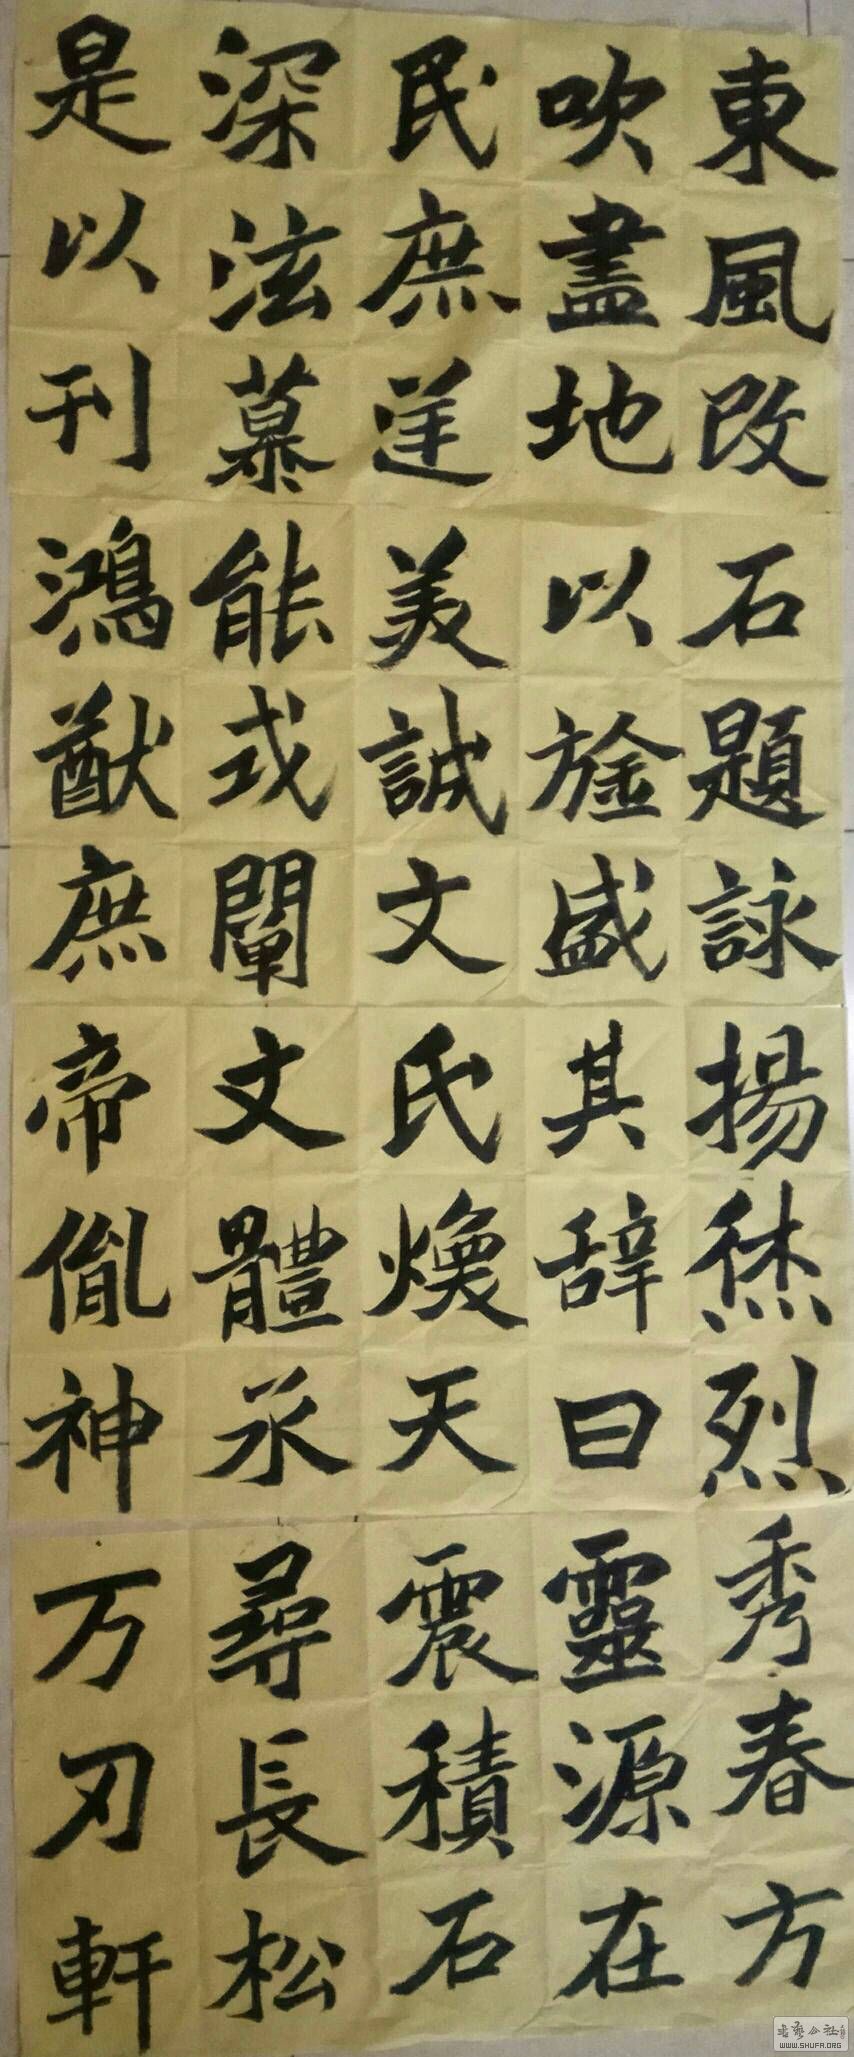 東風改
吹盡地
民庶逆
深泫慕
是以刊
石題詠
以旌盛
美誠文
能式闡
鴻猷庶
揚烋烈
其辞曰
氏煥天
文體承
帝胤神
秀春方
靈源在
震積石
尋長松
万刃軒
WWW.SHUFA.ORG